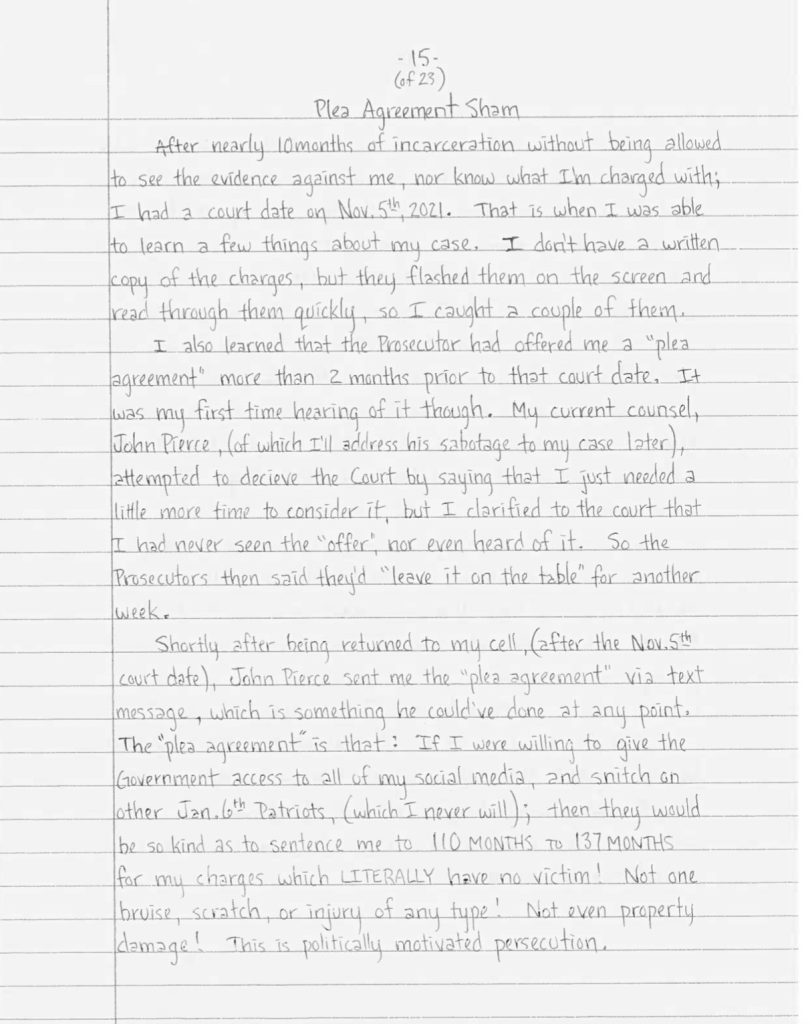 -15-
(of 23)
Plea Agreement Sham
After nearly 10 months of incarceration without being allowed
to see the evidence against me, nor know what I'm charged with;
I had a court date on Nov. 5th, 2021. That is when I was able
to learn a few things about my case. I don't have a written
copy of the charges, but they flashed them on the screen and
read through them quickly, so I caught a couple of them.
I also learned that the Prosecutor had offered me a "plea
agreement" more than 2 months prior to that court date. It
was my first time hearing of it though. My current counsel,
John Pierce, (of which I'll address his sabotage to my case later),
attempted to decieve the Court by saying that I just needed a
little more time to consider it, but I clarified to the court that
I had never seen the "offer", nor even heard of it. So the
Prosecutors then said they'd "leave it on the table" for another
week.
Shortly after being returned to my cell, (after the Nov. 5th
court date), John Pierce sent me the "plea agreement" via text
message, which is something he could've done at any point.
The "plea agreement" is that: If I were willing to give the
Government access to all of my social media, and snitch on
other Jan. 6th Patriots, (which I never will); then they would
be so kind as to sentence me to 110 MONTHS TO 137 MONTHS
for my charges which LITERALLY have no victim! Not one
bruise, scratch, or injury of any type! Not even property
damage! This is politically motivated persecution.